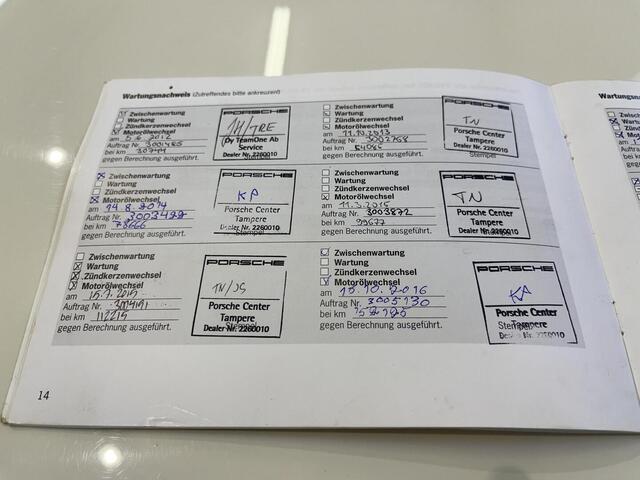 Wartungsnachweis (Zutreffendes bitte ankreuzen!)
Zwischenwartung
Wartung
Zündkerzenwechsel
Motorölwechsel
am 5.6.2012
Auftrag Nr. 3001485
bei km
gegen Berechnung ausgeführt.
PORSCHE
Oy TeamOne Ab
Service
Dealer Nr. 2260010
Zwischenwartung
Wartung
Zündkerzenwechsel
Motorölwechsel
am 11.10.2013
Auftrag Nr. 3002768
bei km
gegen Berechnung ausgeführt.
PORSCHE
TN
Porsche Center
Tampere
Dealer Nr. 2260010
Stempel
Zwischenwartung
Wartung
Zündkerzenwechsel
Motorölwechsel
am 14.8.2014
Auftrag Nr. 3003422
bei km 78666
gegen Berechnung ausgeführt.
PORSCHE
KP
Porsche Center
Tampere
Dealer Nr. 2260010
Stempel
Zwischenwartung
Wartung
Zündkerzenwechsel
Motorölwechsel
am 11.3.2015
Auftrag Nr. 3003872
bei km 99677
gegen Berechnung ausgeführt.
PORSCHE
TN
Porsche Center
Tampere
Dealer Nr. 2260010
Zwischenwartung
Wartung
Zündkerzenwechsel
Motorölwechsel
am 15.7.2015
Auftrag Nr.
bei km 112215
gegen Berechnung ausgeführt.
PORSCHE
TN/JS
Porsche Center
Tampere
Stempel
Dealer Nr. 2260010
Zwischenwartung
Wartung
Zündkerzenwechsel
Motorölwechsel
am 13.10.2016
Auftrag Nr. 3005130
bei km
gegen Berechnung ausgeführt.
PORSCHE
KP
Porsche Center
Tampere
Stempel
Dealer Nr. 2260010
14
Wartungsna